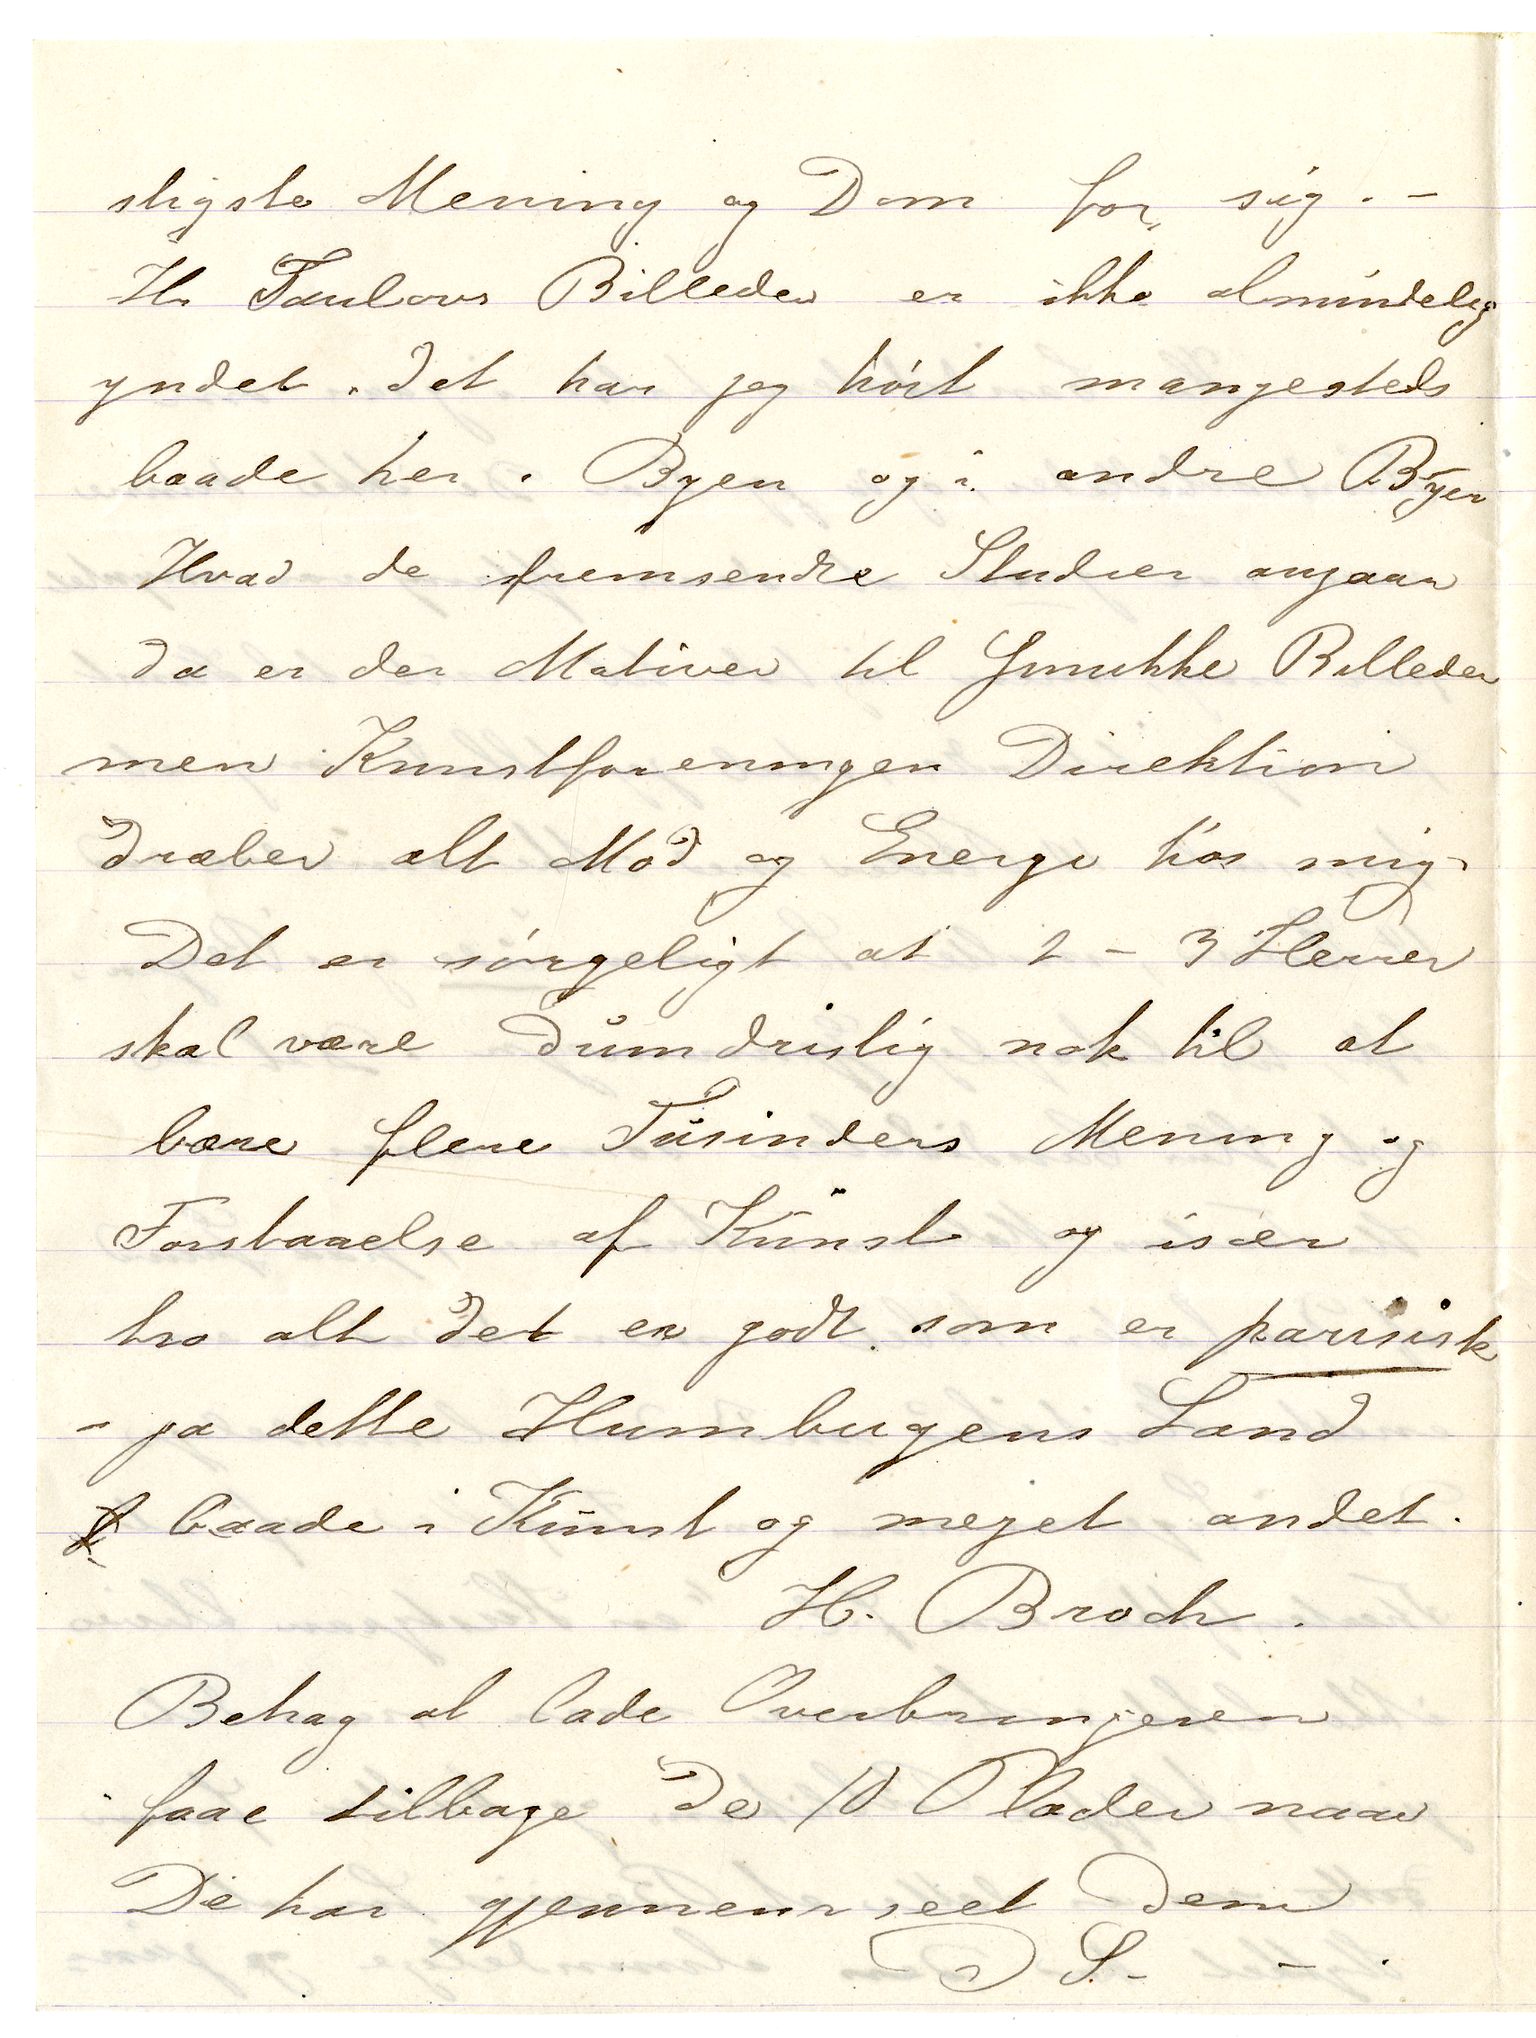 sligste Mening og Dom for sig. –
Hr Taulows Billeder er ikke almindelig
yndet. det har jeg hört mangesteds
baade her i Byen og i andre Byer
Hvad de fremsendte Studier angaar
da er der Motiver til Smukke Billeder
men Kunstforeningen Direktion
dræber alt Mod og Energi hos mig.
Det er sörgeligt at 2 – 3 Herrer
skal være dumdristig nok til at
bære flere Tusinders Mening og
Forstaaelse af Kunst og især
tro alt det er godt som er parisisk
– ja dette Humbugens Land
baade i Kunst og meget andet.
H. Broch.
Behag at lade Overbringeren
faae tilbage de 10 Plader naar
De har gjennemseet dem
D S. –